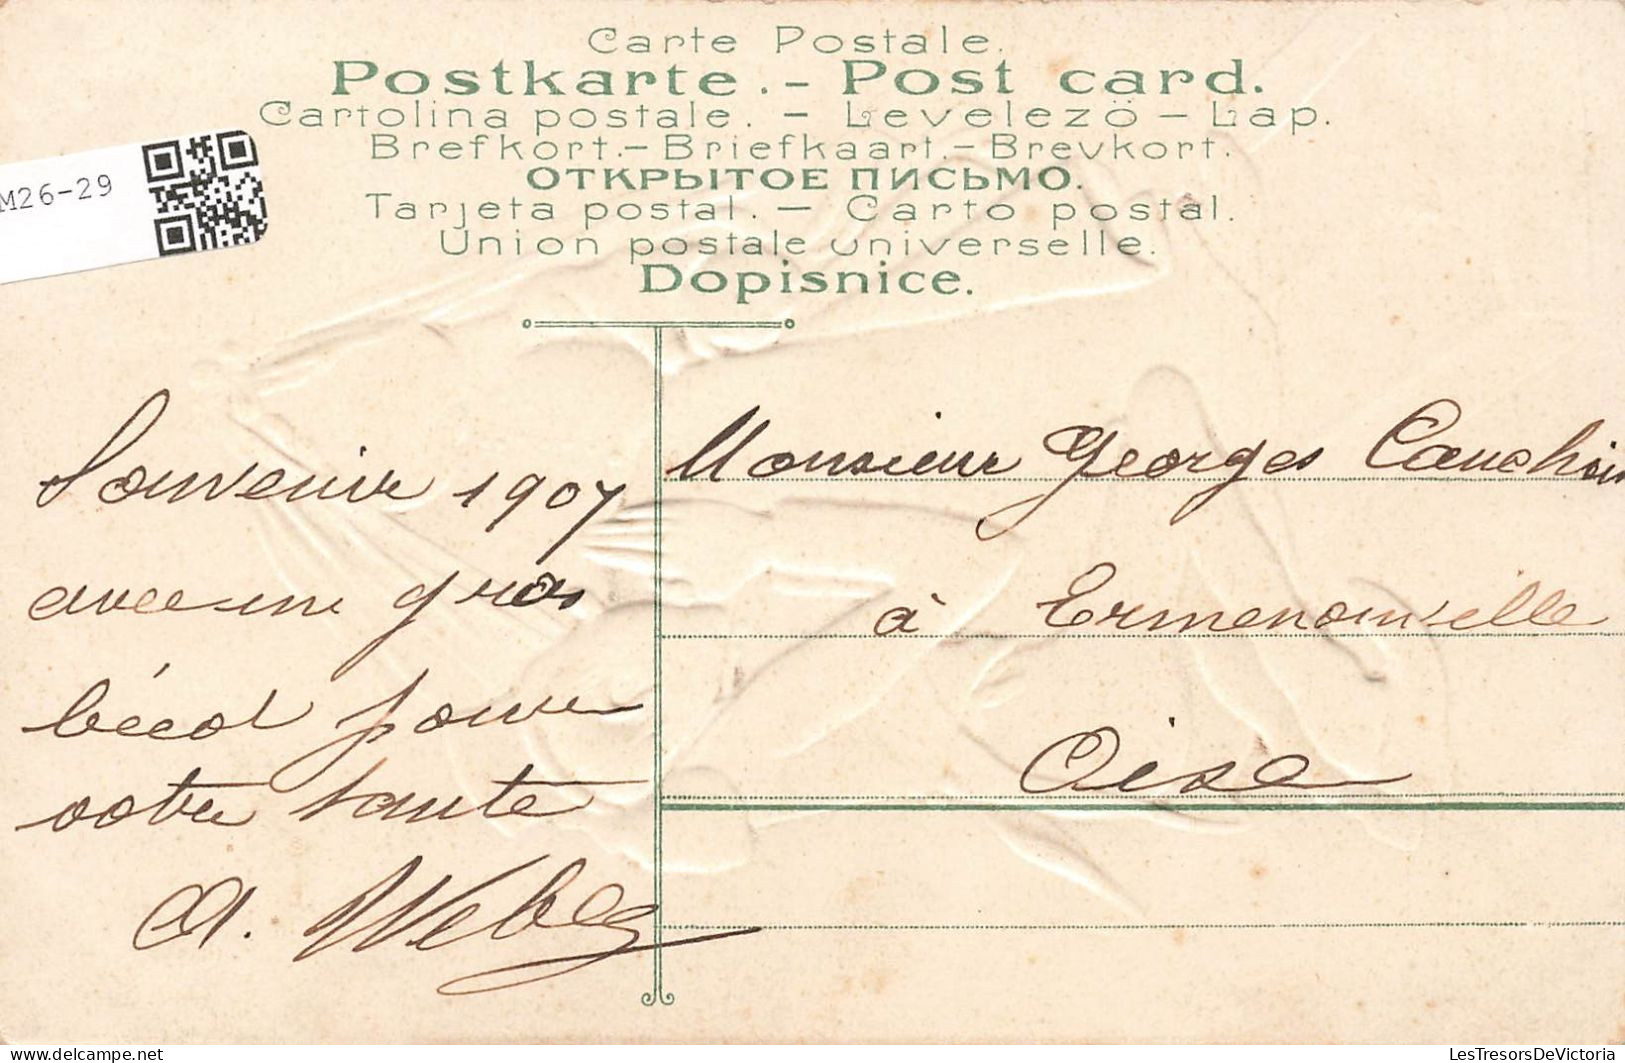 Carte Postale.
Postkarte. - Post card.
Cartolina postale. - Levelezö - Lap.
Brefkort. - Briefkaart. - Brevkort.
ОТКРЫТОЕ ПИСЬМО.
Tarjeta postal. - Carto postal.
Union postale universelle.
Dopisnice.
M26-29
Souvenir 1907
avec un gros
bécot pour
votre tante
A. Weber
Monsieur Georges
à Ermenonville
Oise
delcampe.net
LesTresorsDeVictoria